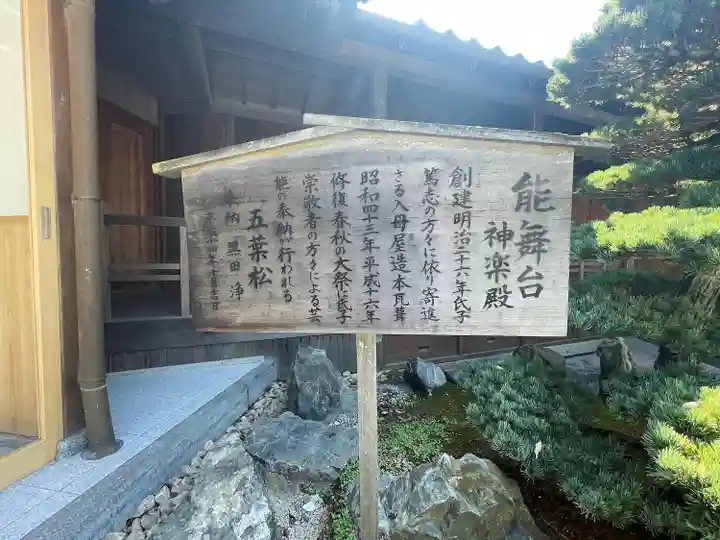 能舞台
神楽殿
創建明治二十六年氏子
篤志の方々に依り寄進
さる入母屋造本瓦葺
昭和四十三年平成十六年
修復春秋の大祭に氏子
崇敬者の方々による芸
能の奉納が行われる
五葉松
奉納 黒田 浄